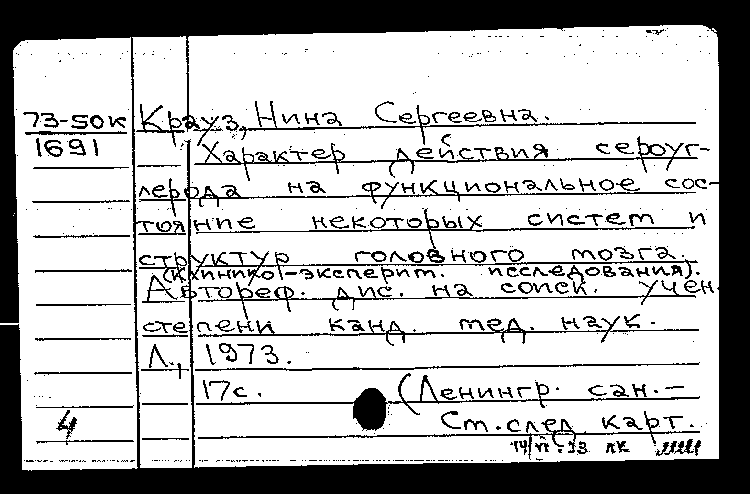 73-50к Крауз, Нина Сергеевна.
1691 Характер действия сероуг-
лерода на функциональное сос-
тояние некоторых систем и
структур головного мозга.
(клинико-эксперим. исследования).
Автореф. дис. на соиск. учен.
степени канд. мед. наук.
Л., 1973.
17с. (Ленингр. сан.-
4 См. след. карт.